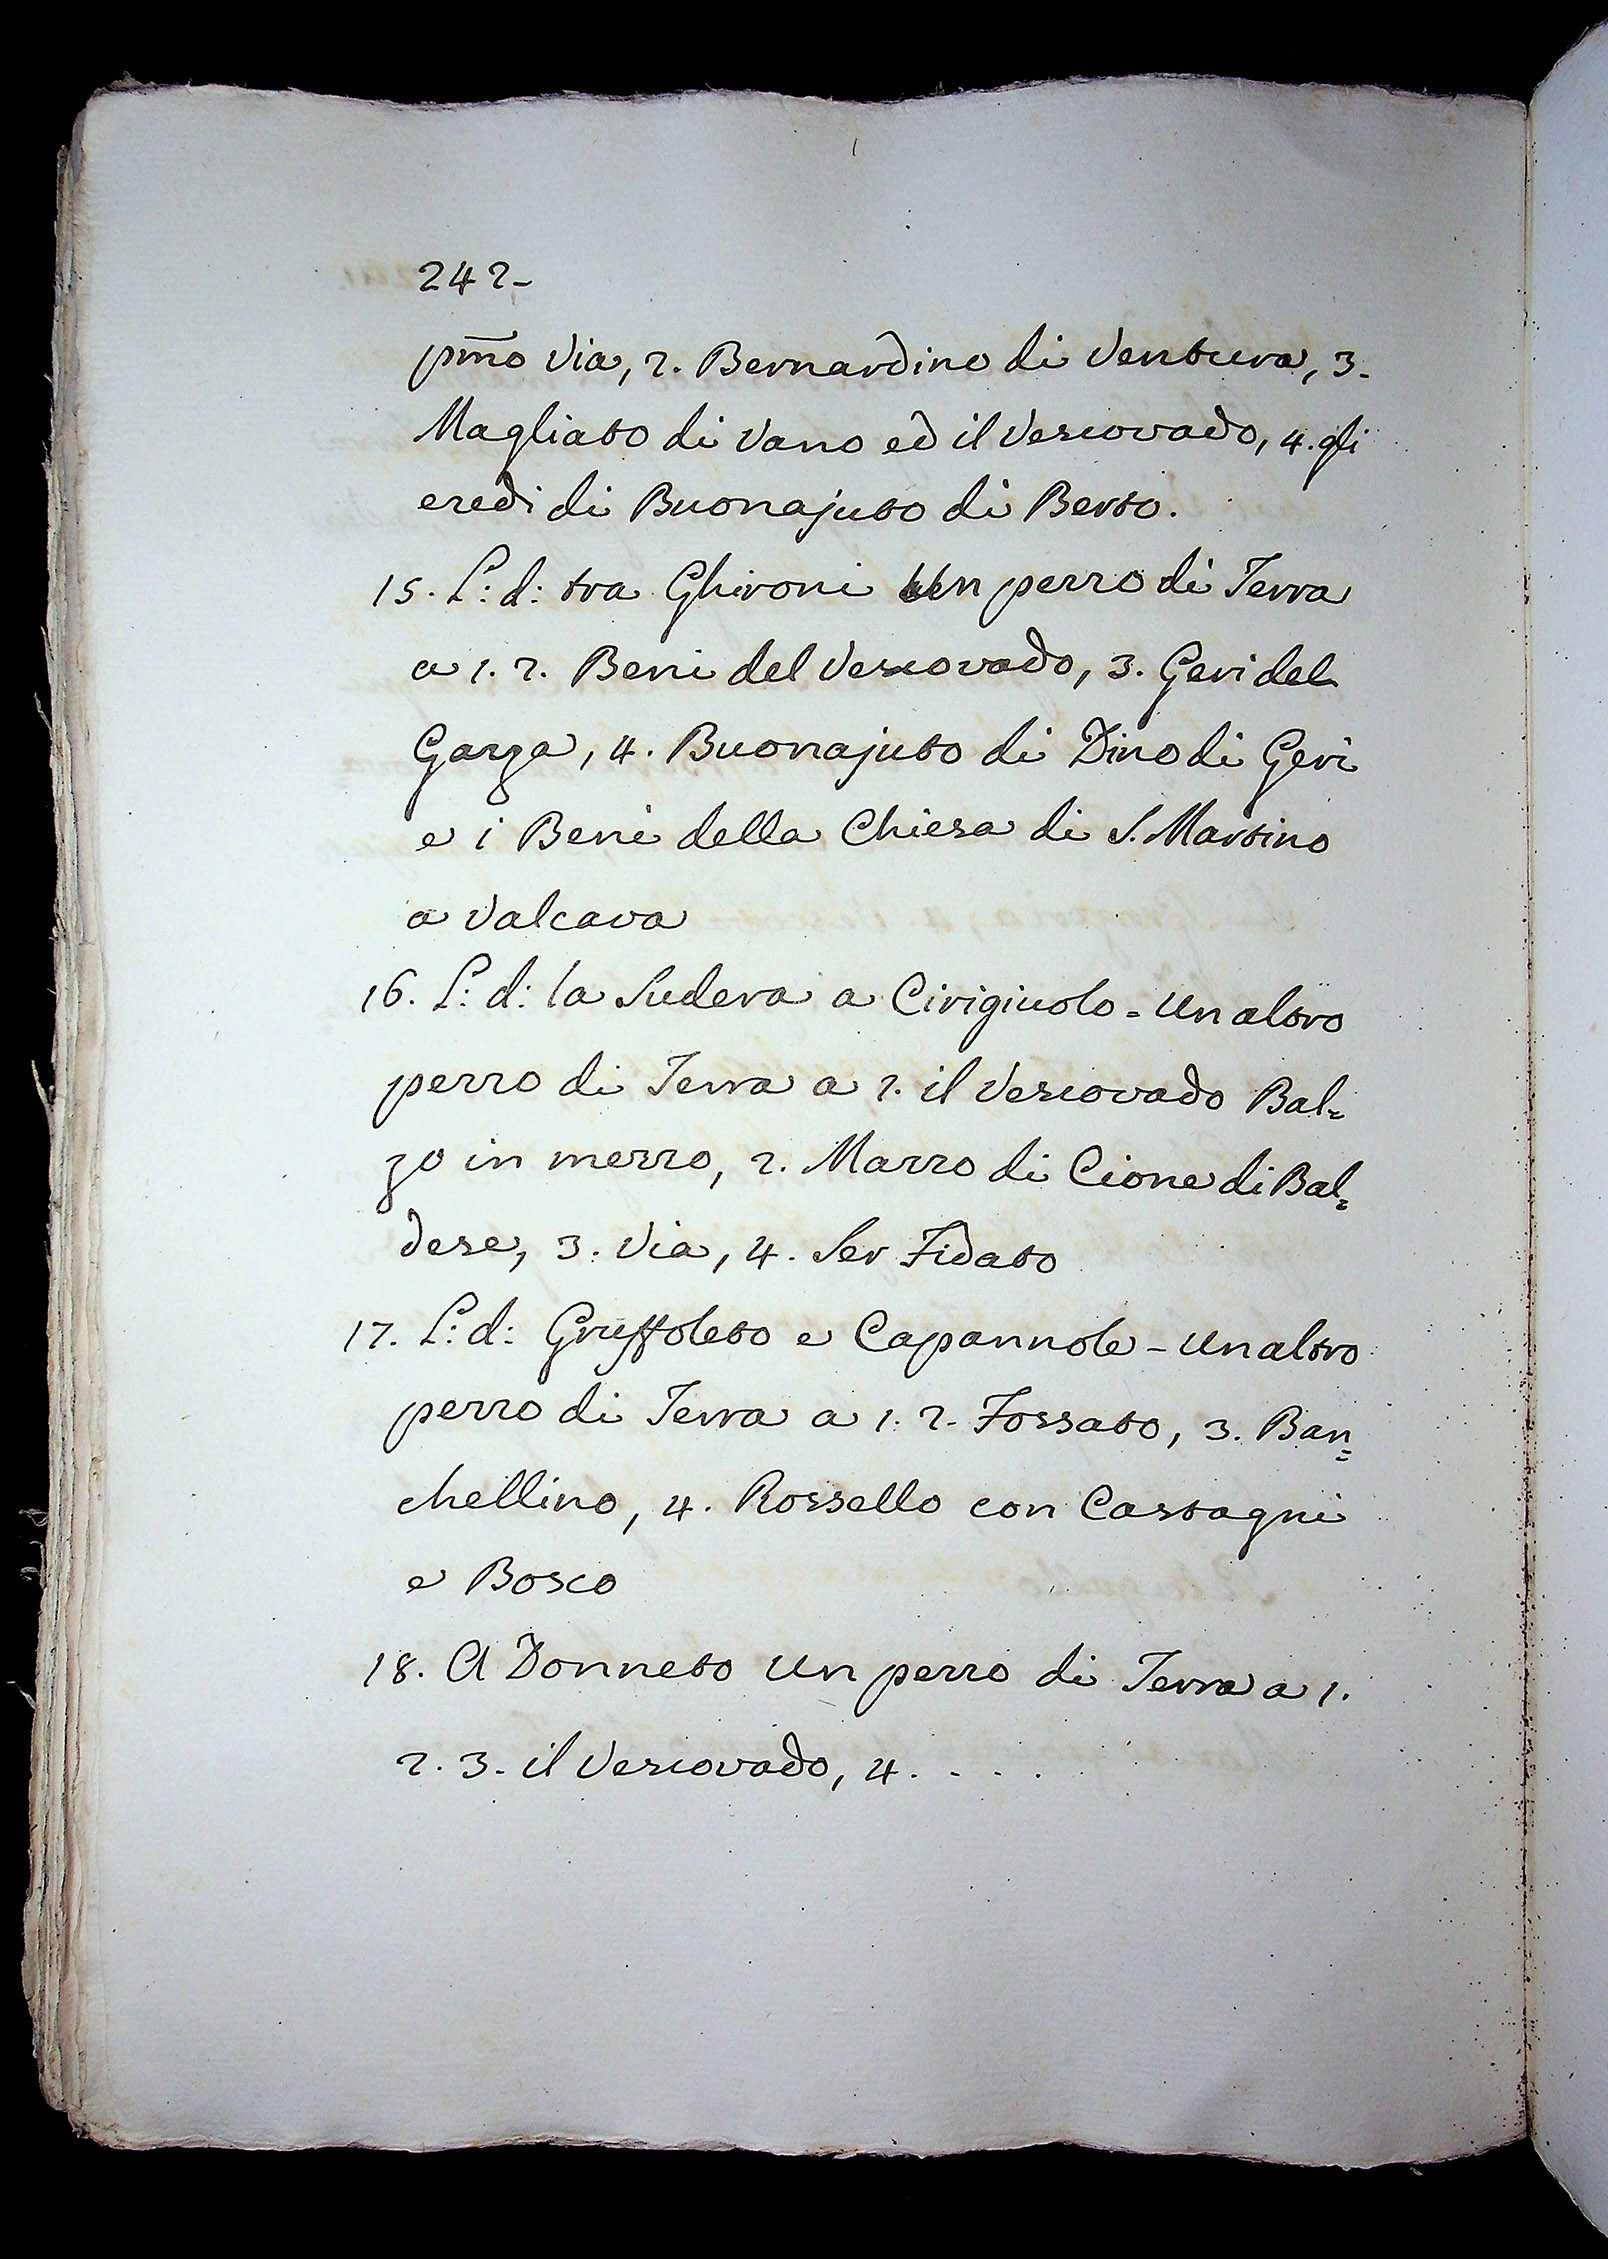 242-
pm̃o Via, 2. Bernardino di Ventura, 3.
Magliato di Vano ed il Vescovado, 4. gli
eredi di Buonajuto di Berto.
15. L: d: tra Ghironi Un pezzo di Terra
a 1. 2. Beni del Vescovado, 3. Geri del
Garza, 4. Buonajuto di Dino di Geri
e i Beni della Chiesa di S. Martino
a Valcava
16. L: d: la Sudera a Cirigiuolo = Un altro
pezzo di Terra a 2. il Vescovado Bal=
zo in mezzo, 2. Mazzo di Cione di Bal=
dese, 3. Via, 4. Ser Fidato
17. L: d: Gruffoleto e Capannole - Un altro
pezzo di Terra a 1. 2. Fossato, 3. Ban=
chellino, 4. Rossello con Castagni
e Bosco
18. A Donneto Un pezzo di Terra a 1.
2. 3. il Vescovado, 4. . . . .